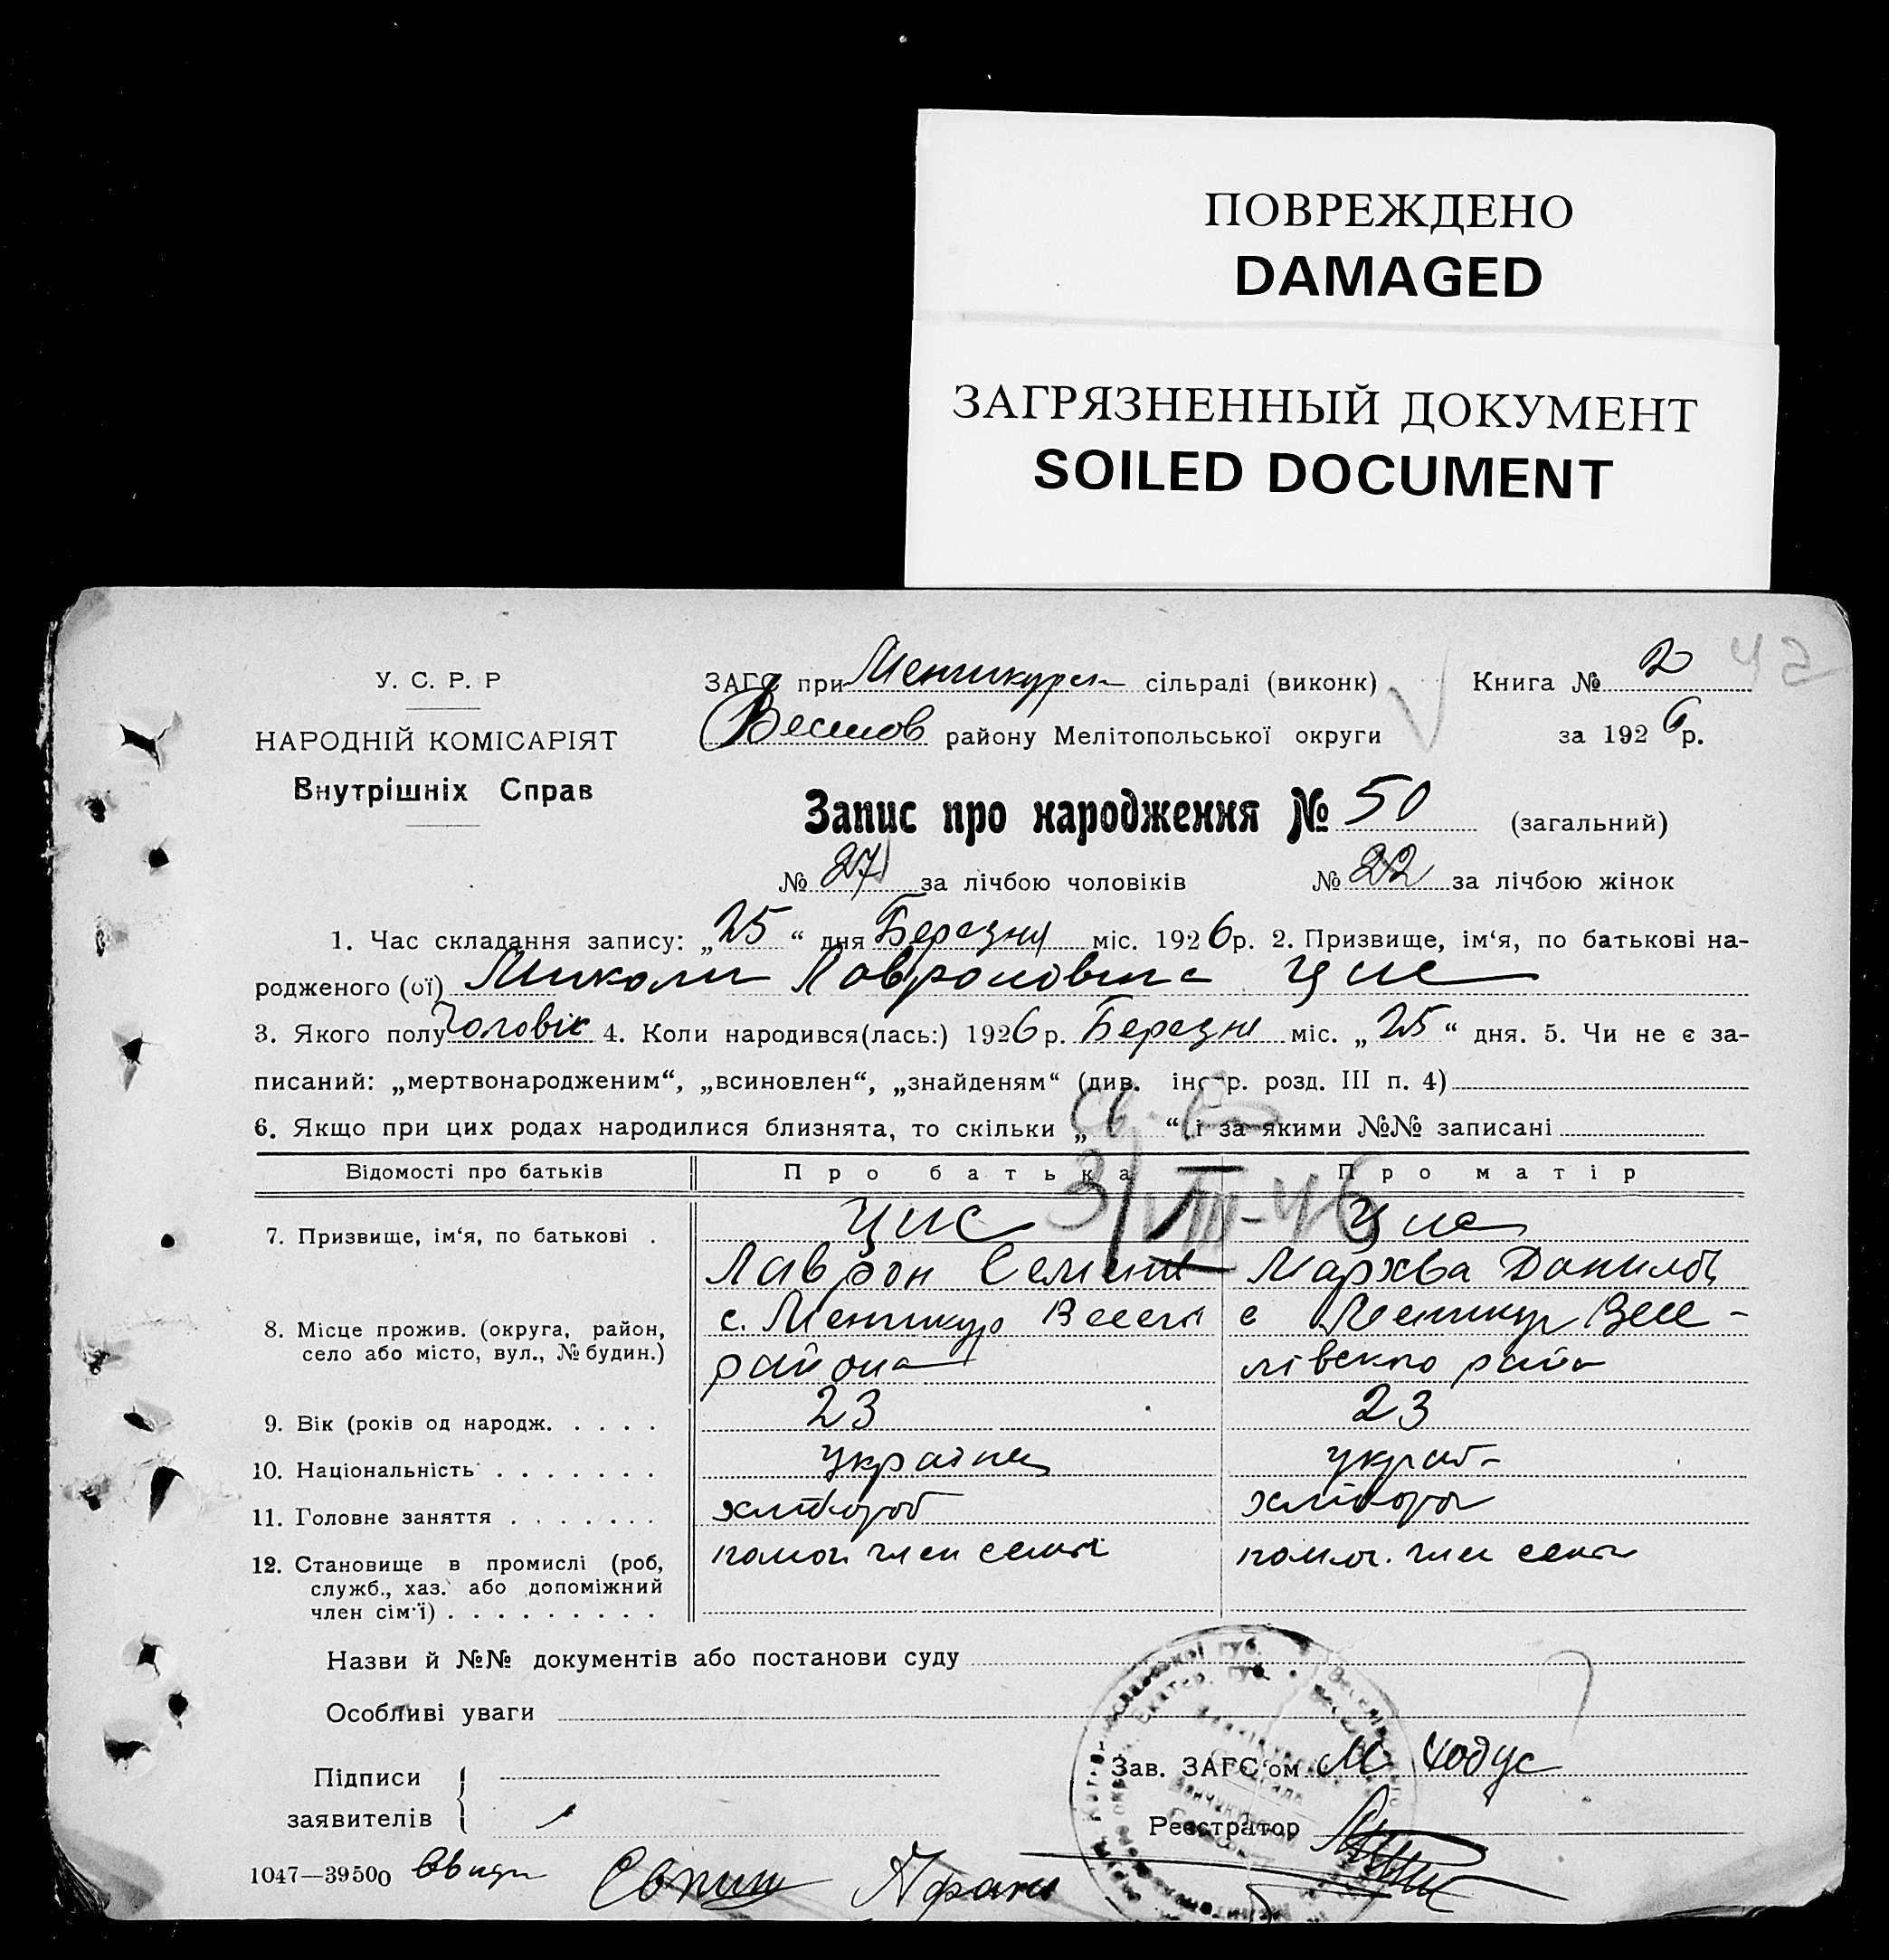 ПОВРЕЖДЕНО
DAMAGED
ЗАГРЯЗНЕННЫЙ ДОКУМЕНТ
SOILED DOCUMENT
42
У. С. Р. Р
НАРОДНІЙ КОМІСАРІЯТ
Внутрішніх Справ
ЗАГС при Менчикурск сільраді (виконк) Книга № 2
Весилов району Мелітопольської округи за 1926 р.
Запис про народження № 50 (загальний)
№ 27 за лічбою чоловіків № 22 за лічбою жінок
1. Час складання запису: „25“ дня Березня міс. 1926 р. 2. Призвище, ім‘я, по батькові на-
родженого (ої) Микола Лавронович Цис
3. Якого полу Чоловік 4. Коли народився(лась:) 1926 р. Березня міс. „25“ дня. 5. Чи не є за-
писаний: „мертвонародженим“, „всиновлен“, „знайденям“ (див. інстр. розд. III п. 4)
6. Якщо при цих родах народилися близнята, то скільки „ “ і за якими №№ записані
Св-во
31/VIII-46
Відомості про батьків Про батька Про матір
7. Призвище, ім‘я, по батькові . Цис Цис
Лаврон Семен Мархва Данилов
8. Місце прожив. (округа, район, с. Менчикур Весел с Менчикур Весе-
село або місто, вул., № будин.) района лівского район
9. Вік (років од народж. . . . . 23 23
10. Національність . . . . . . . українец украї-
11. Головне заняття . . . . . . . хлібороб хлібороб
12. Становище в промислі (роб, помог. член семьи помог. член семьи
служб., хаз. або допоміжний
член сім‘ї) . . . . . . . . .
Назви й №№ документів або постанови суду
Особливі уваги
Підписи Зав. ЗАГС‘ом М Ходус
заявителів Реєстратор
1047—39500